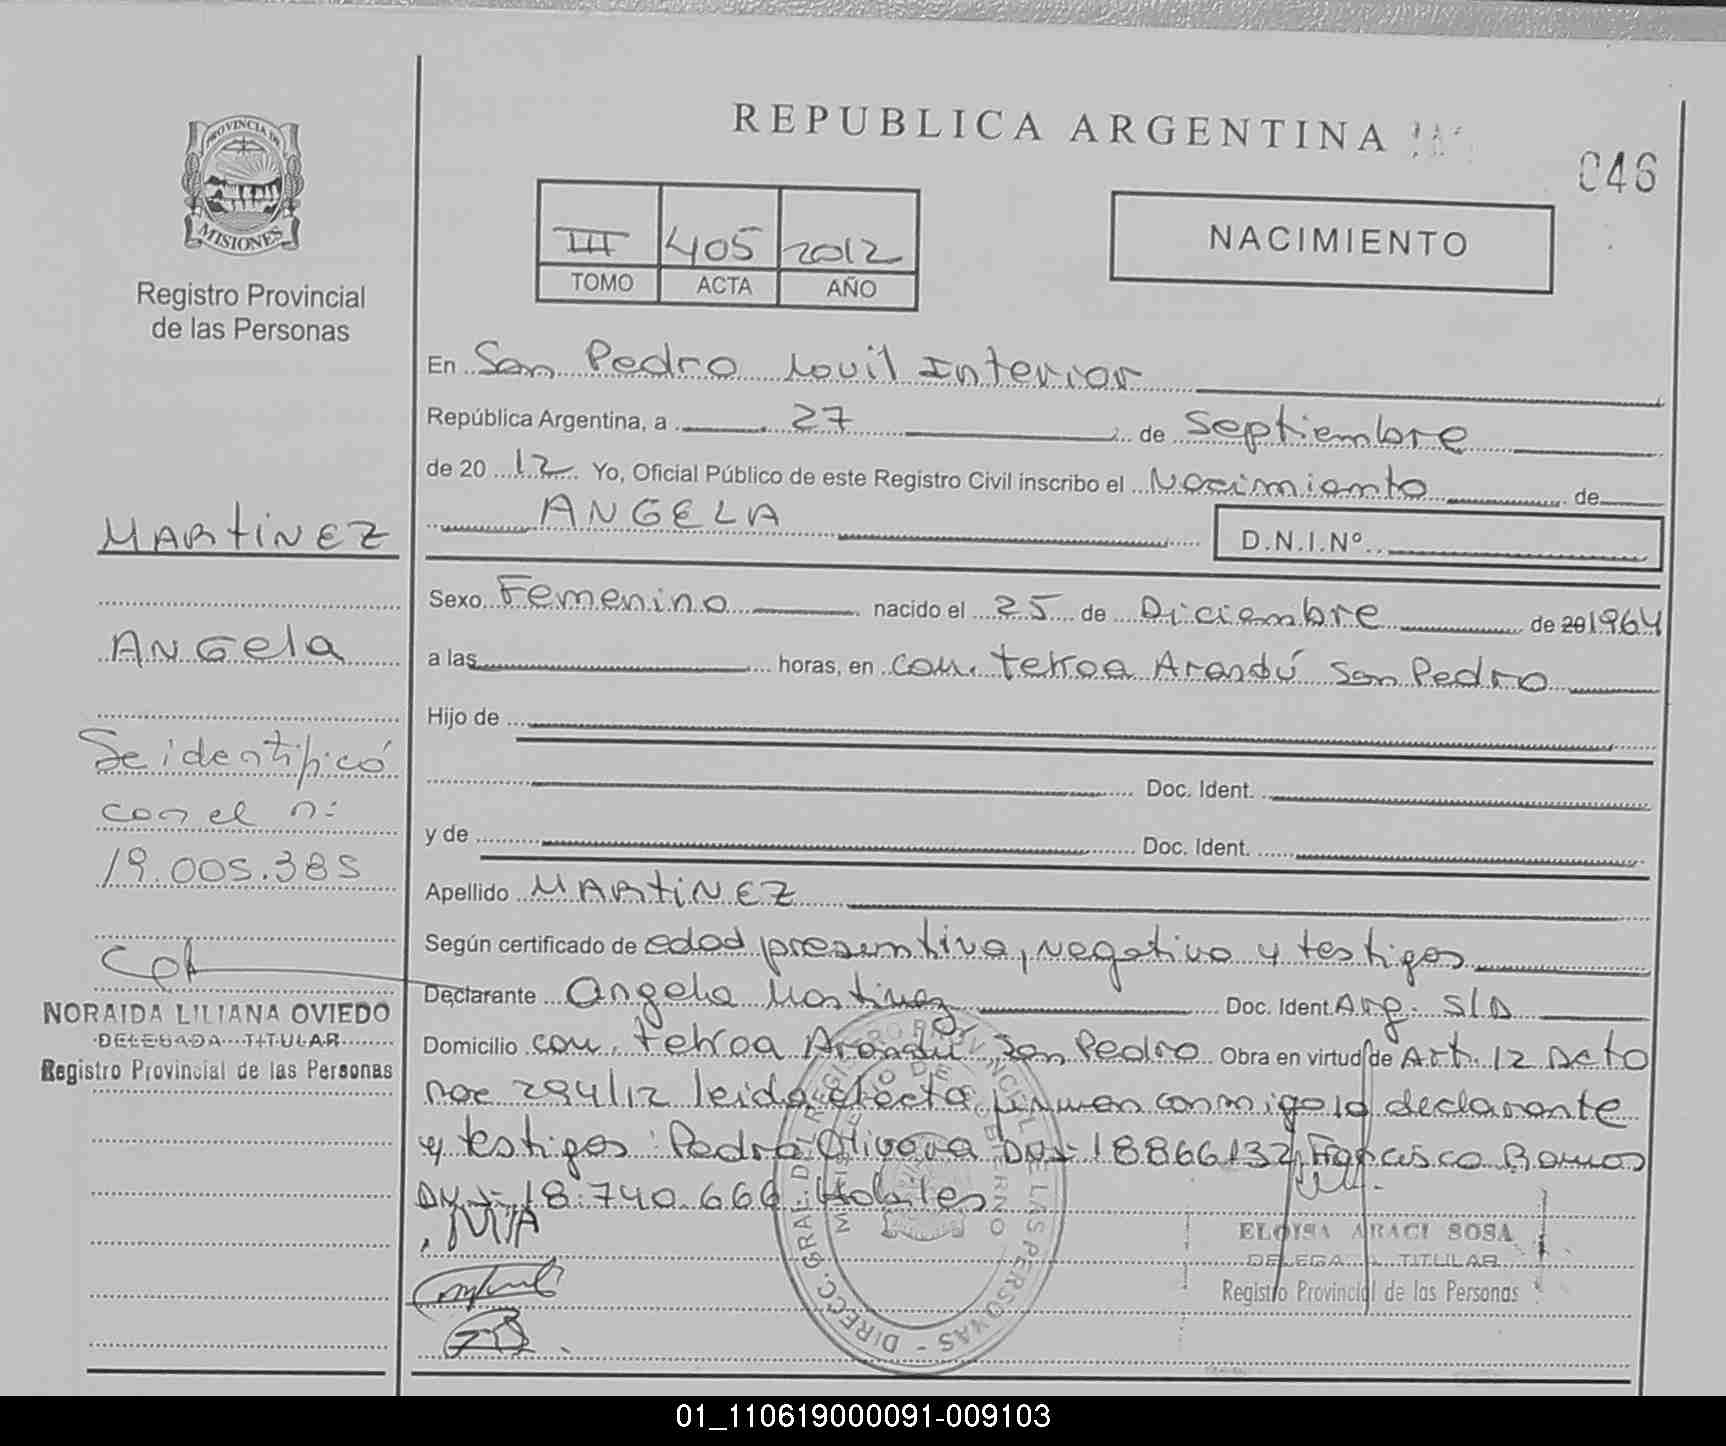 REPUBLICA ARGENTINA
046
PROVINCIA DE
MISIONES
Registro Provincial
de las Personas
III 405 2012
TOMO ACTA AÑO
NACIMIENTO
En San Pedro Movil Interior
República Argentina, a 27 de Septiembre
de 20 12 Yo, Oficial Público de este Registro Civil inscribo el Nacimiento de
ANGELA
D.N.I.Nº
Sexo Femenino nacido el 25 de Diciembre de 20 1964
a las horas, en com. tekoa Arandú San Pedro
Hijo de
Doc. Ident.
y de Doc. Ident.
Apellido MARTINEZ
Según certificado de edad presuntiva, negativo y testigos
Declarante Angela Martinez Doc. Ident. Arg. S/D
Domicilio com. tekoa Arandú San Pedro Obra en virtud de Art. 12 Dcto
nac 294/12 leida el acta, firman conmigo la declarante
y testigos: Pedro Olivera DNI 18866132, Francisco Ramos
DNI 18.740.666 Habiles
MARTINEZ
ANGela
Se identificó
con el n:
19.005.385
NORAIDA LILIANA OVIEDO
DELEGADA TITULAR
Registro Provincial de las Personas
ELOISA ARACI SOSA
DELEGADA TITULAR
Registro Provincial de las Personas
DIRECC. GRAL. DE REGISTRO PROVINCIAL DE LAS PERSONAS
MINISTERIO DE GOBIERNO
01_110619000091-009103